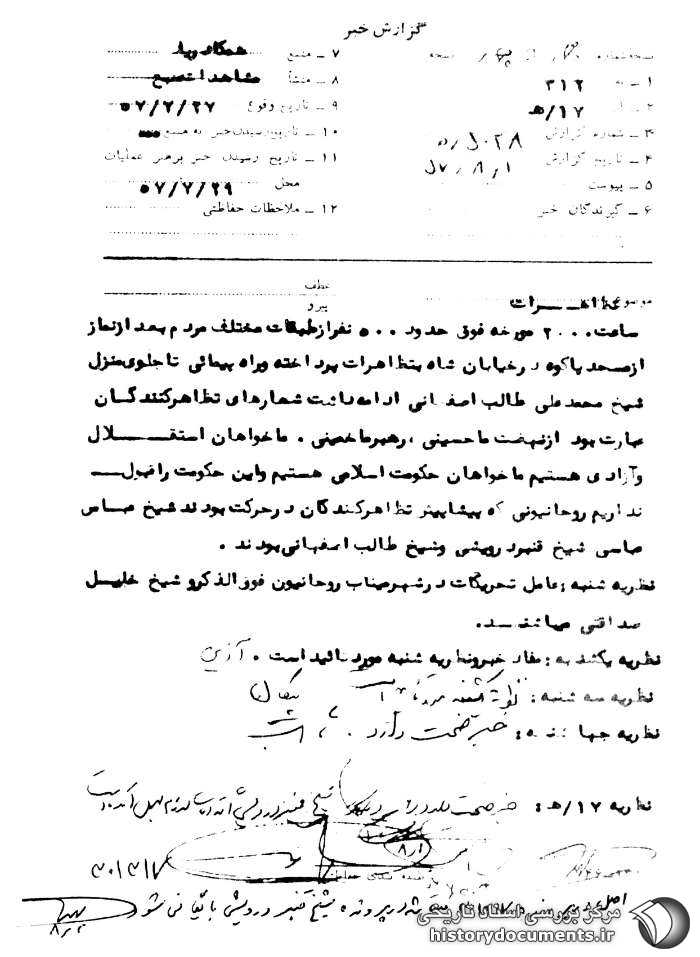 گزارش خبر
نسخه شماره از نسخه
۱ ـ به ۳۱۲
۲ ـ از ۱۷/ه‍
۳ ـ شماره گزارش
۴ ـ تاریخ گزارش ۵۷٫۸٫۱
۵ ـ پیوست
۶ ـ گیرندگان خبر
۷ ـ منبع همکاردیار
۸ ـ منشأ مشاهدات منبع
۹ ـ تاریخ وقوع ۵۷/۷/۲۷
۱۰ ـ تاریخ رسیدن خبر به منبع
۱۱ ـ تاریخ رسیدن خبر برهبر عملیات
محل ۵۷/۷/۲۹
۱۲ ـ ملاحظات حفاظتی
موضوع تظاهــرات
عطف
پیرو
ساعت ۲۰۰۰ مورخه فوق حدود ۵۰۰ نفر از طبقات مختلف مردم بعد از نماز
از مسجد پاکوه در خیابان شاه بتظاهرات پرداخته و راه پیمائی تا جلوی منزل
شیخ محمدعلی طالب اصفهانی ادامه داشت شعارهای تظاهرکنندگان
عبارت بود از نهضت ما حسینی ، رهبر ما خمینی . ما خواهان استقـــلال
و آزادی هستیم ما خواهان حکومت اسلامی هستیم و این حکومت را قبول
نداریم روحانیونی که پیشاپیش تظاهرکنندگان در حرکت بودند شیخ عباس
عباسی شیخ قنبر درویشی و شیخ طالب اصفهانی بودند .
نظریه شنبه : عامل تحریکات در شهر میناب روحانیون فوق الذکر و شیخ خلیل
صداقتی میباشنــد.
نظریه یکشنبه : مفاد خبر و نظریه شنبه مورد تائید است . آذین
نظریه سه شنبه : نظریه یکشنبه مورد تائید است
نظریه چهارشنبه : خبر صحت دارد .
نظریه ۱۷/ه‍ : خبر صحت دارد شیخ قنبر درویشی
۸٫۱
اصل در پرونده در پرونده شیخ قنبر درویشی بایگانی شود
مرکز بررسی اسناد تاریخی
historydocuments.ir